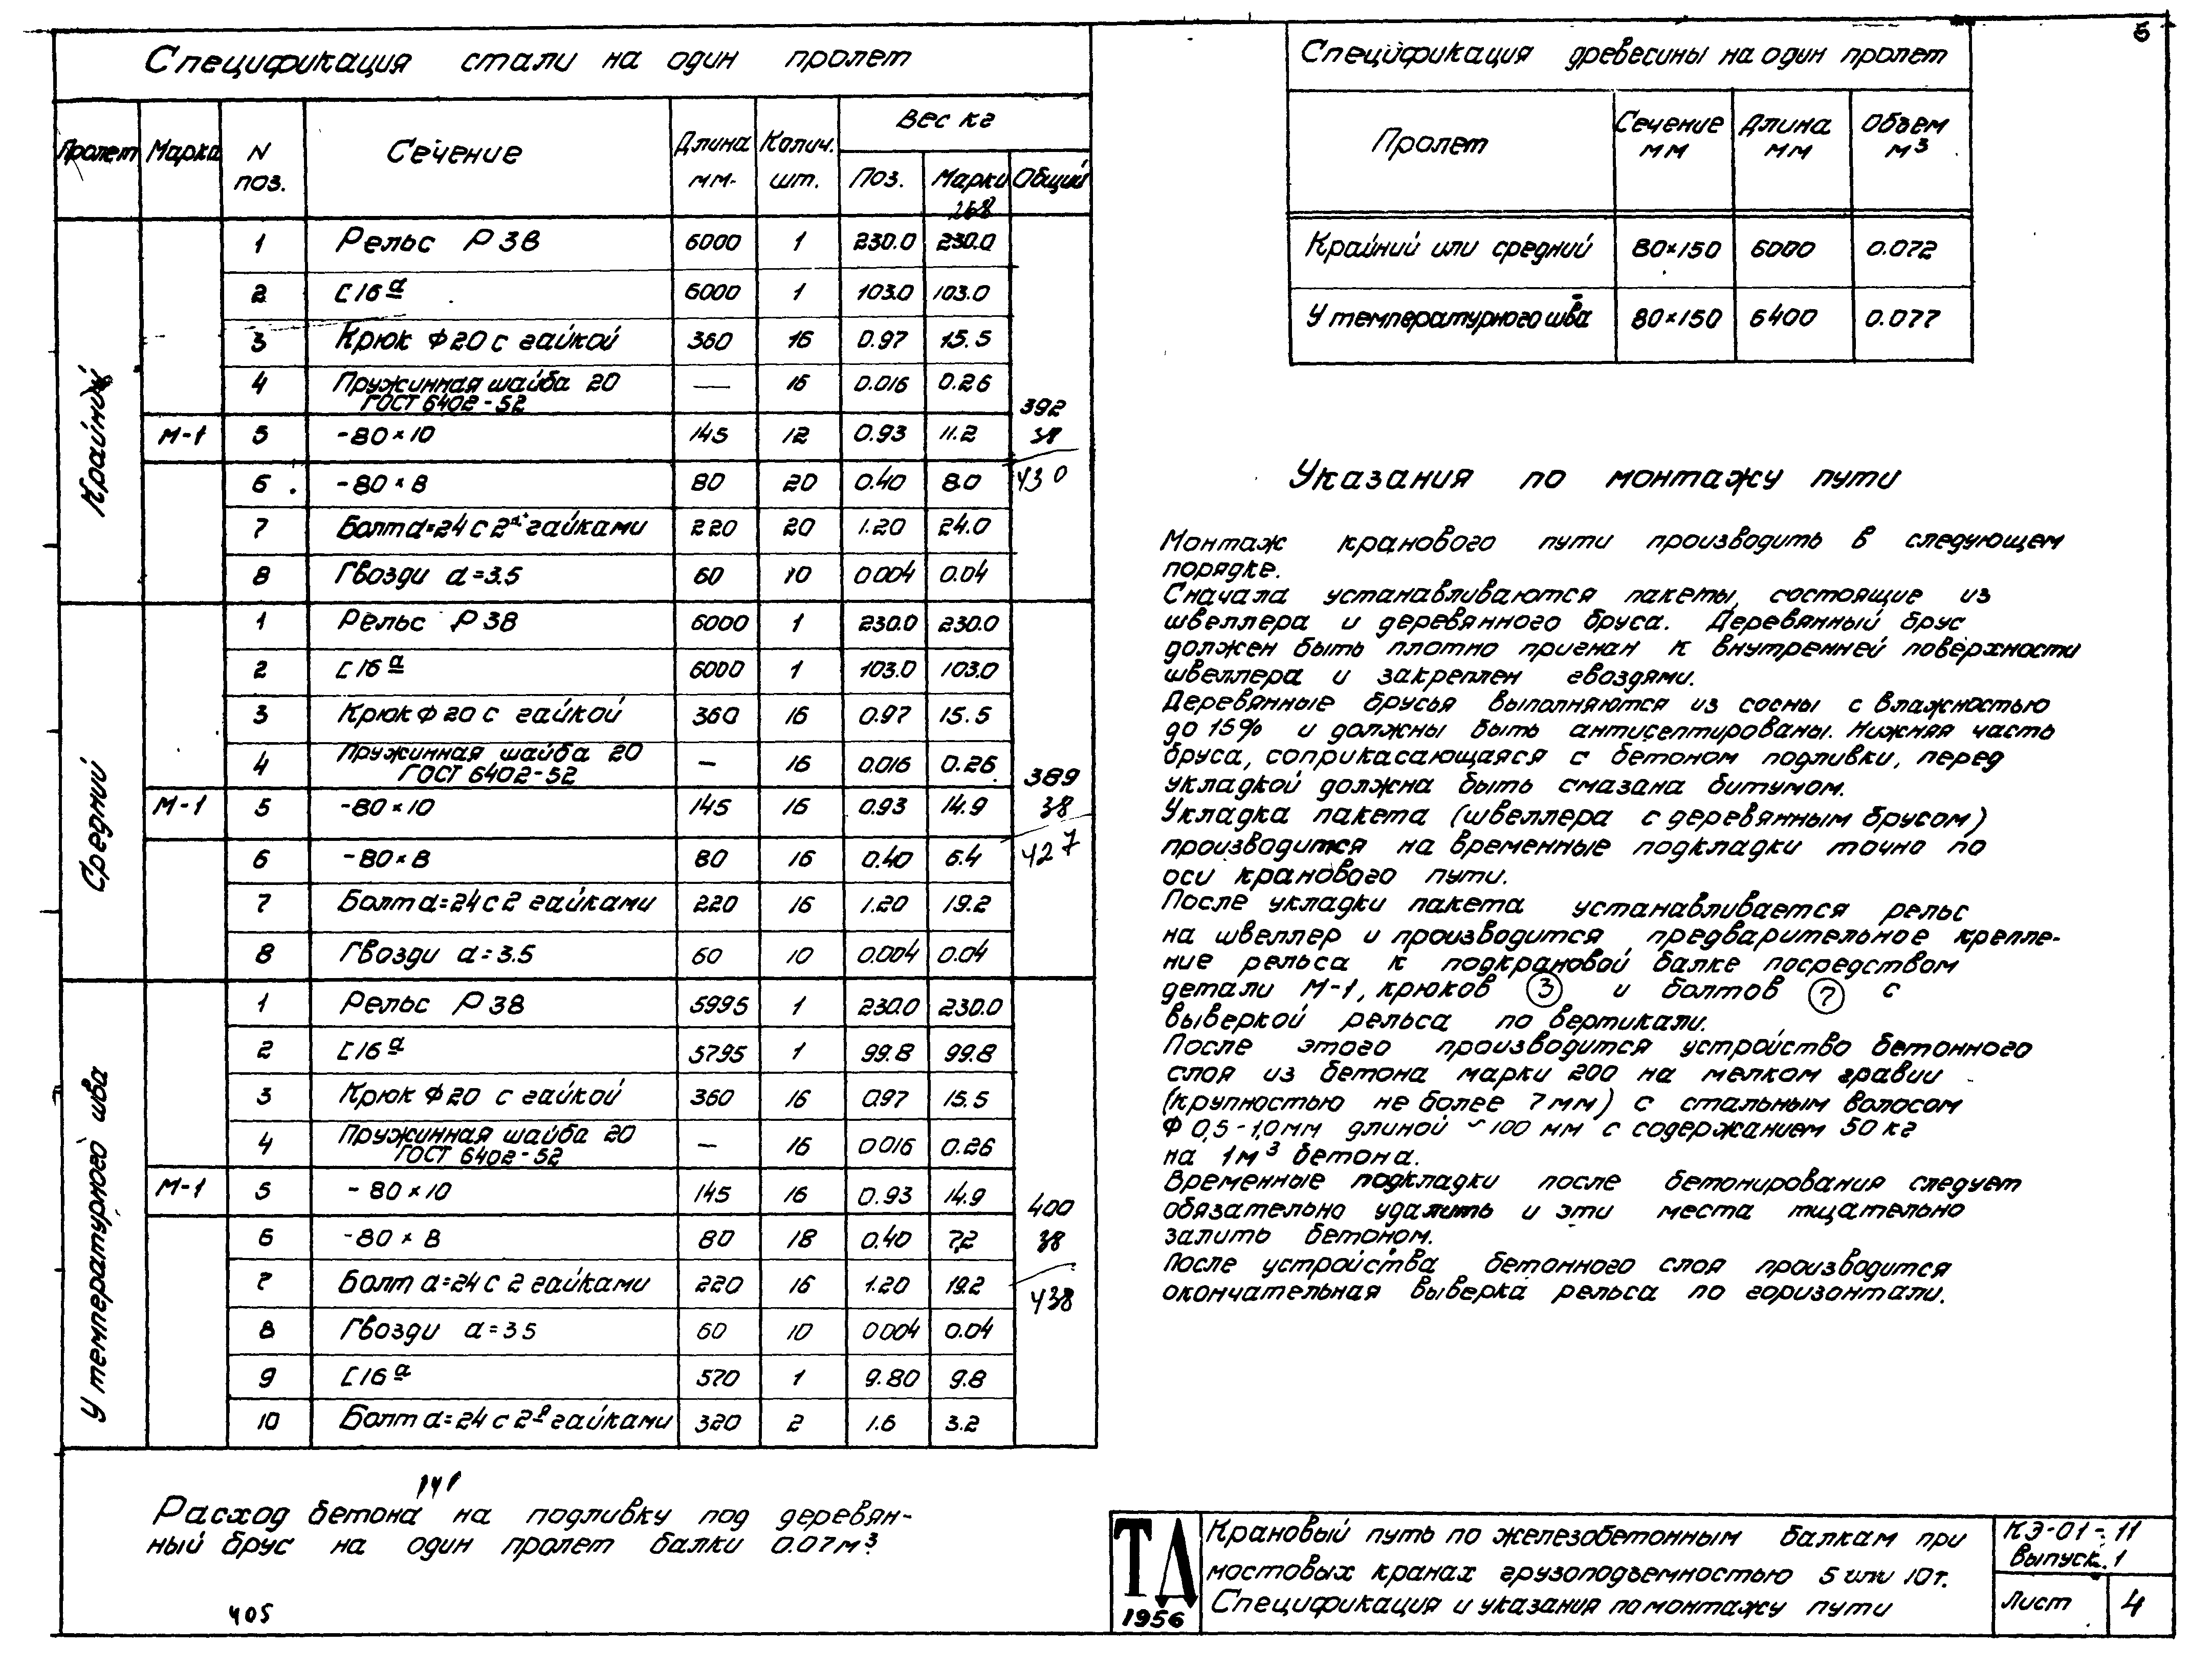 5
Спецификация стали на один пролет
Пролет Марка N поз. Сечение Длина мм. Колич. шт. Вес кг
Поз. Марки Общий
268
Крайний
1 Рельс Р38 6000 1 230.0 230.0
2 [16а 6000 1 103.0 103.0
3 Крюк Ф20 с гайкой 360 16 0.97 15.5
4 Пружинная шайба 20 — 16 0.016 0.26
ГОСТ 6402-52
392
М-1 5 -80×10 145 12 0.93 11.2 38
6 -80×8 80 20 0.40 8.0 430
7 Болт d=24 с 2 гайками 220 20 1.20 24.0
8 Гвозди d=3.5 60 10 0.004 0.04
Средний
1 Рельс Р38 6000 1 230.0 230.0
2 [16а 6000 1 103.0 103.0
3 Крюк Ф20 с гайкой 360 16 0.97 15.5
4 Пружинная шайба 20 — 16 0.016 0.26
ГОСТ 6402-52
389
М-1 5 -80×10 145 16 0.93 14.9 38
6 -80×8 80 16 0.40 6.4 427
7 Болт d=24 с 2 гайками 220 16 1.20 19.2
8 Гвозди d=3.5 60 10 0.004 0.04
У температурного шва
1 Рельс Р38 5995 1 230.0 230.0
2 [16а 5795 1 99.8 99.8
3 Крюк Ф20 с гайкой 360 16 0.97 15.5
4 Пружинная шайба 20 — 16 0.016 0.26
ГОСТ 6402-52
М-1 5 -80×10 145 16 0.93 14.9 400
6 -80×8 80 18 0.40 7.2 38
7 Болт d=24 с 2 гайками 220 16 1.20 19.2 438
8 Гвозди d=3.5 60 10 0.004 0.04
9 [16а 570 1 9.80 9.8
10 Болт d=24 с 2 гайками 320 2 1.6 3.2
141
Расход бетона на подливку под деревян-
ный брус на один пролет балки 0.07м³.
405
Спецификация древесины на один пролет
Пролет Сечение мм Длина мм Объем м³
Крайний или средний 80×150 6000 0.072
У температурного шва 80×150 6400 0.077
Указания по монтажу пути
Монтаж кранового пути производить в следующем
порядке.
Сначала устанавливаются пакеты, состоящие из
швеллера и деревянного бруса. Деревянный брус
должен быть плотно пригнан к внутренней поверхности
швеллера и закреплен гвоздями.
Деревянные брусья выполняются из сосны с влажностью
до 15% и должны быть антисептированы. Нижняя часть
бруса, соприкасающаяся с бетоном подливки, перед
укладкой должна быть смазана битумом.
Укладка пакета (швеллера с деревянным брусом)
производится на временные подкладки точно по
оси кранового пути.
После укладки пакета устанавливается рельс
на швеллер и производится предварительное крепле-
ние рельса к подкрановой балке посредством
детали М-1, крюков ③ и болтов ⑦ с
выверкой рельса по вертикали.
После этого производится устройство бетонного
слоя из бетона марки 200 на мелком гравии
(крупностью не более 7мм) с стальным волосом
Ф 0,5-1,0мм длиной ~100 мм с содержанием 50 кг
на 1м³ бетона.
Временные подкладки после бетонирования следует
обязательно удалить и эти места тщательно
залить бетоном.
После устройства бетонного слоя производится
окончательная выверка рельса по горизонтали.
ТД
1956
Крановый путь по железобетонным балкам при
мостовых кранах грузоподъемностью 5 или 10т.
Спецификация и указания по монтажу пути
КЭ-01-11
Выпуск 1
Лист 4